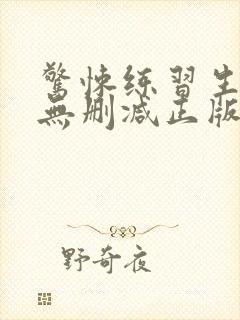 驚悚练習生
無删减正版
野奇夜